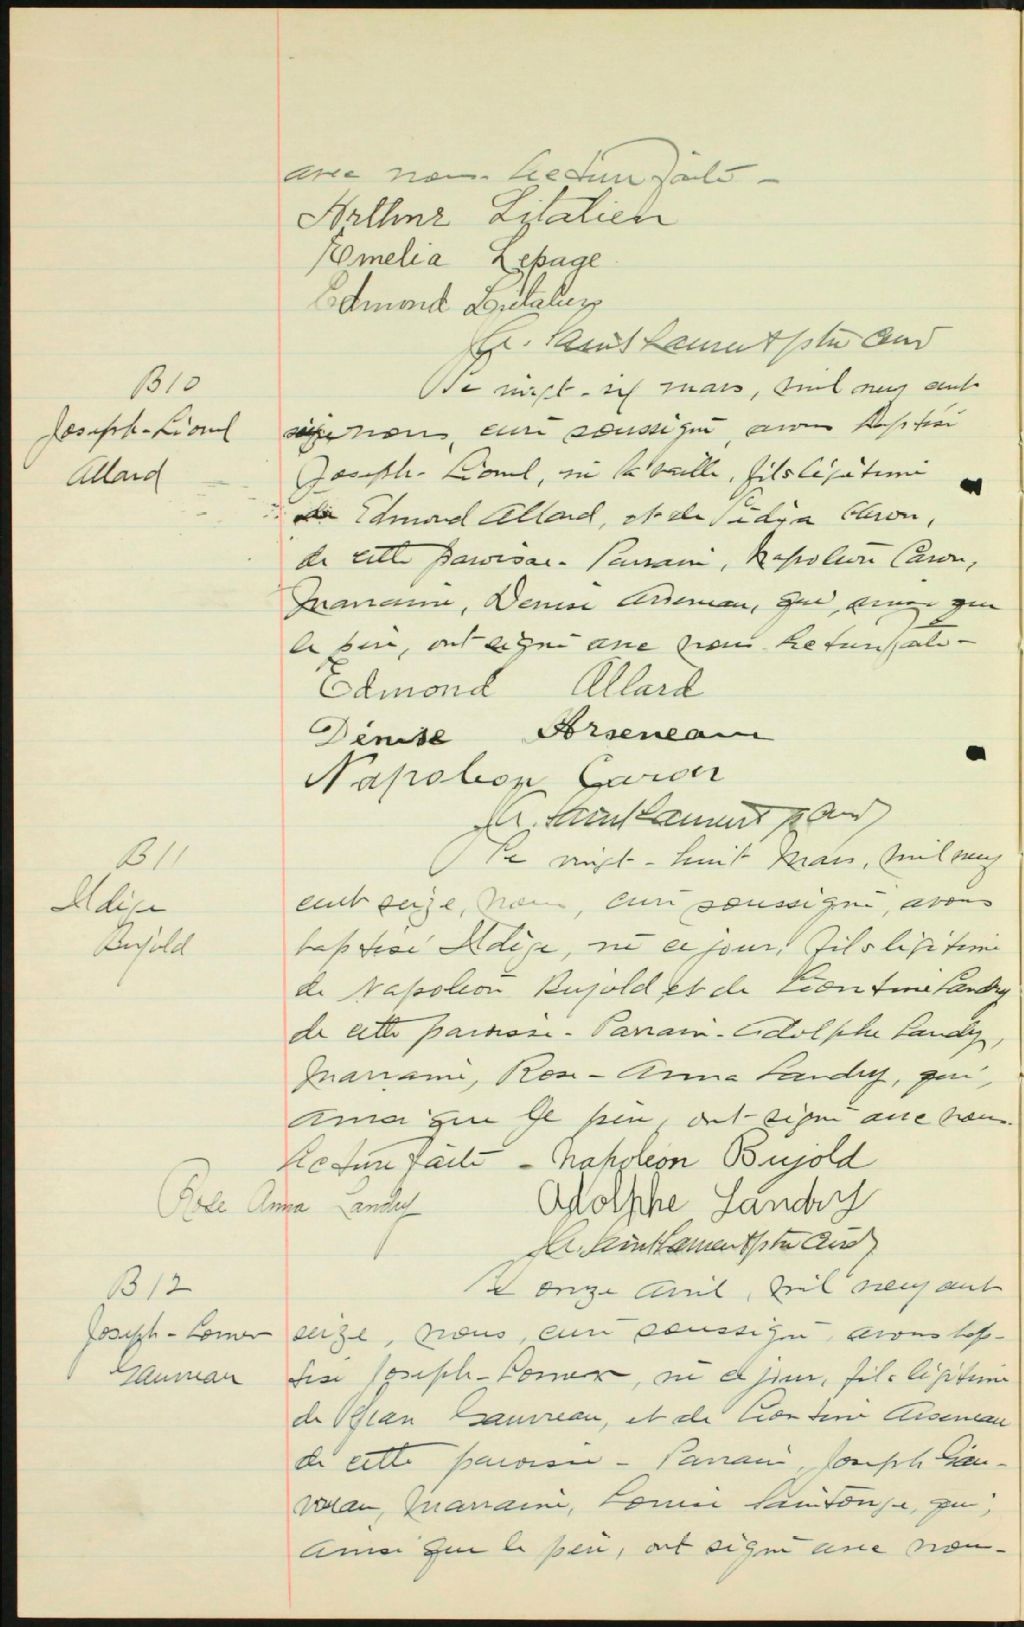 avec nous. Lecture faite -
Arthur Litalien
Emelia Lepage
Edmond Litalien
Saint Laurent ptre curé
B10
Joseph-Lionel
Allard
Le vingt-six mars, mil neuf cent
seize nous, curé soussigné, avons baptisé
Joseph-Lionel, né la veille, fils légitime
de Edmond Allard, et de Caron,
de cette paroisse. Parrain, Napoléon Caron,
Marraine, Denise Arseneau, qui, ainsi que
le père, ont signé avec nous. Lecture faite -
Edmond Allard
Dénise Arseneau
Napoleon Caron
Saint Laurent p curé
B11
Bujold
Le vingt-huit Mars, mil neuf
cent seize, nous, curé soussigné, avons
baptisé né ce jour, fils légitime
de Napoléon Bujold et de Léontine Landry
de cette paroisse - Parrain - Adolphe Landry,
Marraine, Rose-Anna Landry, qui,
ainsi que le père, ont signé avec nous.
Lecture faite - Napoléon Bujold
Rose Anna Landry Adolphe Landry
Saint Laurent ptre curé
B12
Joseph-
Gauvreau
Le onze avril, mil neuf cent
seize, nous, curé soussigné, avons bap-
tisé Joseph- né ce jour, fils légitime
de Jean Gauvreau, et de Léontine Arseneau
de cette paroisse - Parrain, Joseph Gau-
vreau, Marraine, Louise Saintonge, qui,
ainsi que le père, ont signé avec nous-